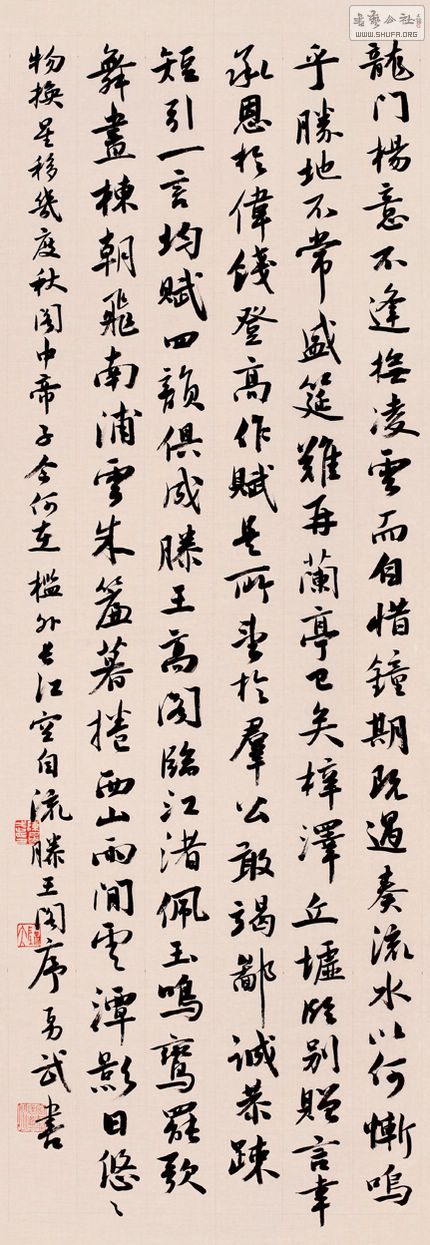 書藝公社
WWW.SHUFA.ORG
龍门楊意不逢撫凌雲而自惜鐘期既遇奏流水以何慚嗚
乎勝地不常盛筵難再蘭亭已矣梓澤丘墟臨别贈言幸
承恩於偉餞登高作賦是所望於羣公敢竭鄙誠恭疎
短引一言均賦四韻俱成滕王高阁臨江渚佩玉鳴鸞罷歌
舞畫棟朝飛南浦雲朱簾暮捲西山雨閒雲潭影日悠〻
物換星移幾度秋阁中帝子今何在檻外長江空自流滕王阁序 武書